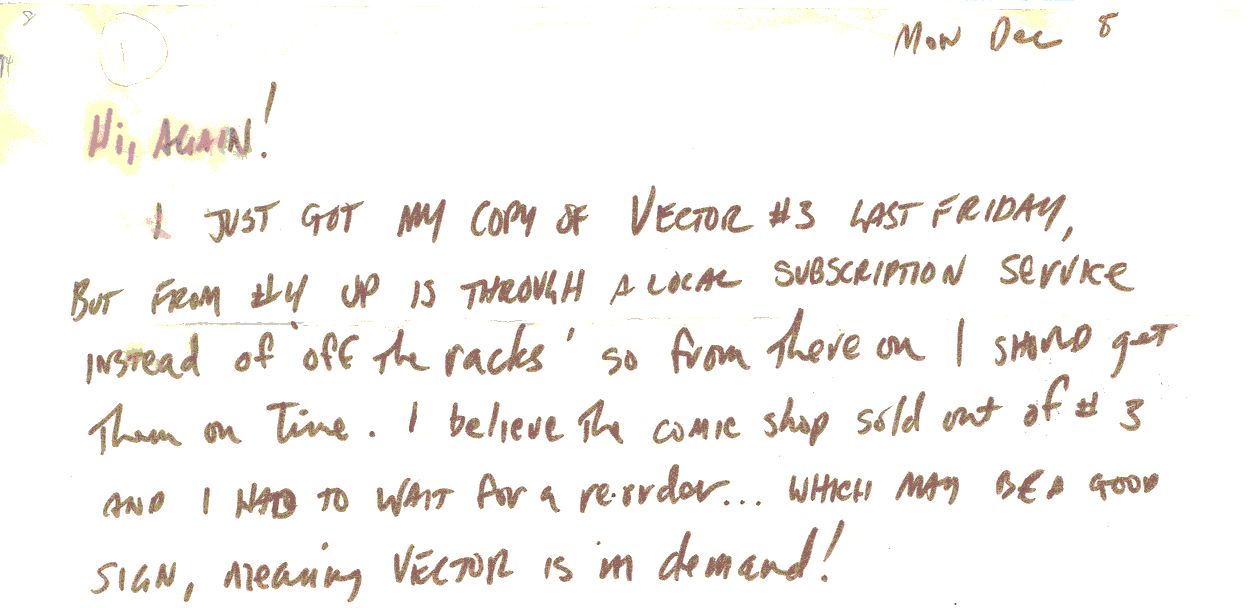 8
1
74
Mon Dec 8
Hi, AGAIN!
I JUST GOT MY COPY OF VECTOR #3 LAST FRIDAY,
BUT FROM #4 UP IS THROUGH A LOCAL SUBSCRIPTION SERVICE
INSTEAD of 'off The racks' so from There on I SHOULD get
Them on Time. I believe The comic shop sold out of #3
AND I HAD TO WAIT for a re-order... WHICH MAY BE A GOOD
SIGN, meaning VECTOR IS in demand!